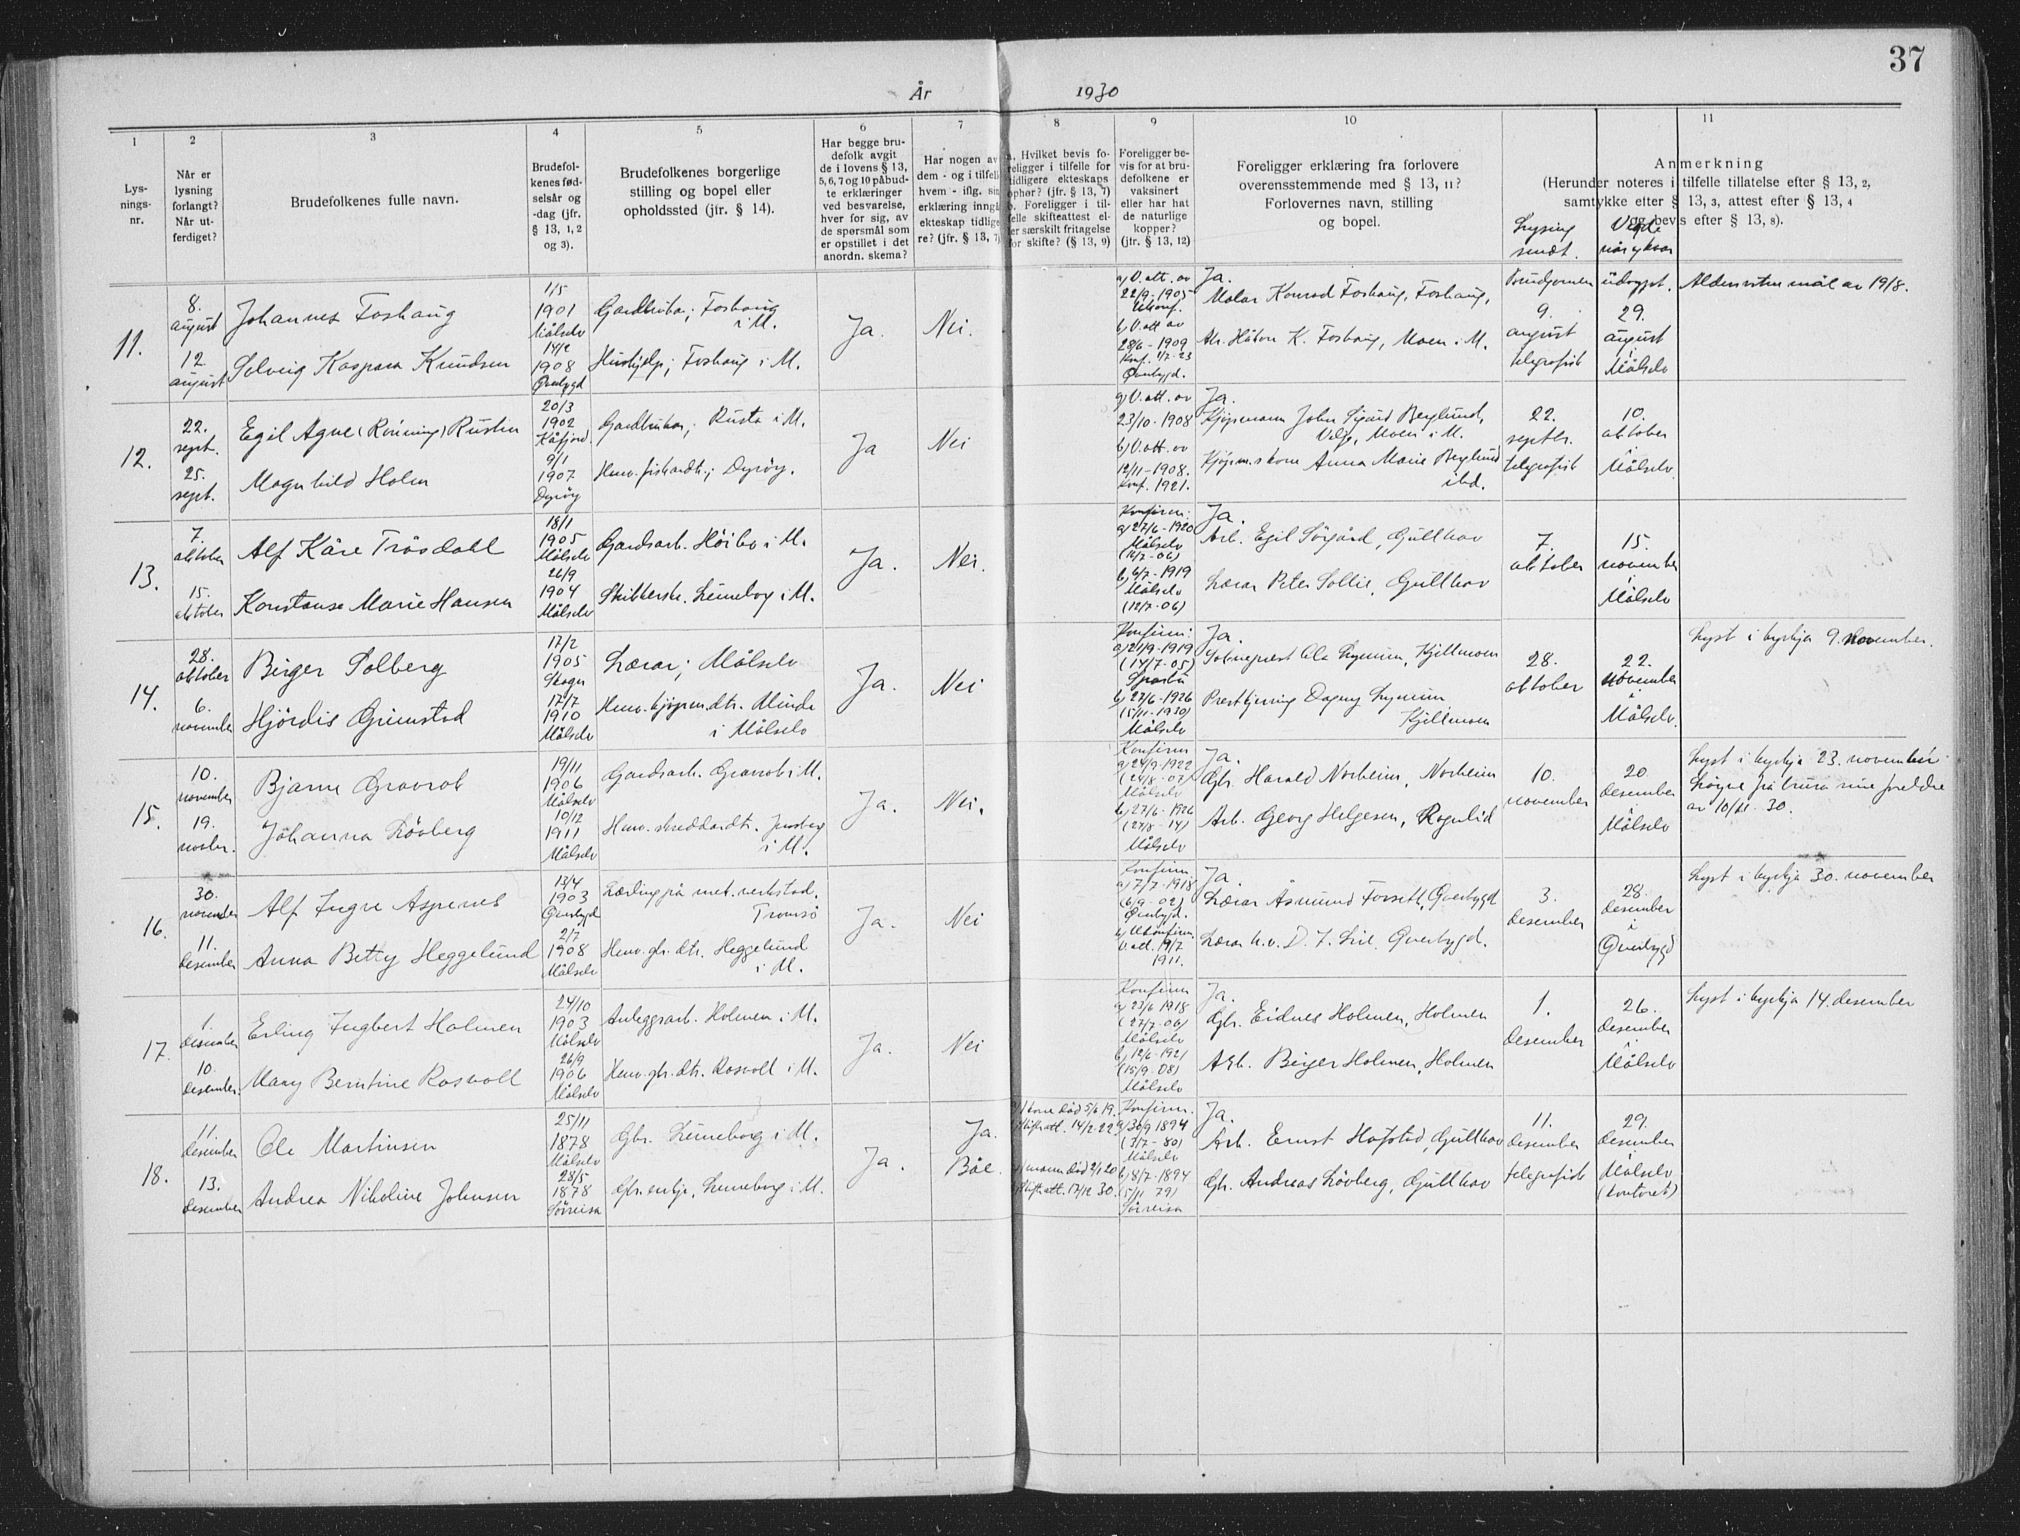 37
År 1930
1 2 3 4 5 6 7 8 9 10 11
Lys-
nings-
nr.
Når er
lysning
forlangt?
Når ut-
ferdiget?
Brudefolkenes fulle navn.
Brudefol-
kenes fød-
selsår og
-dag (jfr.
§ 13, 1, 2
og 3).
Brudefolkenes borgerlige
stilling og bopel eller
opholdssted (jfr. § 14).
Har begge bru-
defolk avgit
de i lovens § 13,
5, 6, 7 og 10 påbud-
te erklæringer
ved besvarelse,
hver for sig, av
de spørsmål som
er opstillet i det
anordn. skema?
Har nogen av
dem - og i tilfelle
hvem - iflg. sin
erklæring inngå
ekteskap tidlige-
re? (jfr. § 13, 7)
a. Hvilket bevis fo-
religger i tilfelle for
tidligere ekteskaps
ophør? (jfr. § 13, 7)
b. Foreligger i til-
felle skifteattest el-
ler særskilt fritagelse
for skifte? (§ 13, 9)
Foreligger be-
vis for at bru-
defolkene er
vaksinert
eller har hat
de naturlige
kopper?
(jfr. § 13, 12)
Foreligger erklæring fra forlovere
overensstemmende med § 13, 11?
Forlovernes navn, stilling
og bopel.
Lysing
sendt.
Vigde
når og kvar
Anmerkning
(Herunder noteres i tilfelle tillatelse efter § 13, 2,
samtykke efter § 13, 3, attest efter § 13, 4
og bevis efter § 13, 8).
11.
8.
august
12
august
Johannes Foshaug
Solveig Kaspara Knudsen
1/5
1901
Målselv
14/2
1908
Øverbygd
Gardbrukar; Foshaug
i M.
Hushjelp; Foshaug i M.
Ja.
Nei.
a) V. att. av
22/9-1905
Ukonf.
b) V. att av
28/6-1909
Konf. 1/7-23
Øverbygd.
Ja.
Malar Konrad Foshaug, Foshaug,
Ar. Håkon K. Foshaug, Moen i M.
Brudgomen
9.
august
telegrafisk
utdrypt.
29.
august
i
Målselv
Aldersvitnemål av 19/8.
12.
22.
sept.
25.
sept.
Egil Agne (Rønning) Rusten
Magnhild Holm
20/3
1902
Kåfjord.
9/1
1907
Dyrøy
Gardbrukar; Rusta i M.
Hemv. fiskardt.; Dyrøy.
Ja
Nei
a) V. att. av
23/10-1908
b) V. att. av
12/11-1908.
Konf. 1921.
Ja.
Kjøpmann John Sigurd Berglund,
Moen i M.
Kjøpm.skone Anna Marie Berglund
ibd.
22.
septbr.
telegrafisk
10.
oktober
i
Målselv
13.
7.
oktober
15.
oktober
Alf Kåre Tråsdahl
Konstanse Marie Hansen
18/1
1905
Målselv
26/9
1904
Målselv
Gardsarb. Høibo i M.
Skibberske. Lenneborg i M.
Ja.
Nei.
Konfirm:
a) 27/6-1920
Målselv
(16/7-06)
b) 6/7-1919
Målselv
(12/7-06)
Ja.
Arb. Egil Sørgård, Gullhav
Lærar Peter Sollie, Gullhav
7.
oktober
15.
november
i
Målselv
14.
28.
oktober
6.
november
Birger Solberg
Hjørdis Grimstad
17/2
1905
Skoger
17/7
1910
Målselv
Lærar; Målselv
Hemv. kjøpm.dtr. Minde
i Målselv
Ja.
Nei
Konfirm:
a) 21/9-1919
(14/7-05)
Sparbu
b) 27/6-1926
(15/11-1930)
Målselv
Ja.
Sokneprest Ola Lyngmo, Kjellmoen
Prestkjerring Dagny Lyngmo
Kjellmoen
28.
oktober
22.
november
i
Målselv.
Lyst i kyrkja 9. november.
15.
10.
november
19.
novbr.
Bjarne Gravrok
Johanna Løvberg
19/11
1906
Målselv
10/12
1911
Målselv
Gardsarb. Gravrok i M.
Hemv. skreddardt.
i M.
Ja.
Nei.
Konfirm
a) 24/9-1922
(24/8-07)
Målselv
b) 27/6-1926
(27/8-14)
Målselv
Ja.
Gbr. Harald Norheim, Norheim
Arb. Georg Helgesen, Rognlid
10.
november
20.
desember
i
Målselv
Lyst i kyrkja 23. november.
Løyve frå brura sine foreldre
av 10/11-30.
16.
30.
november
11.
desember
Alf Ingve Aspenes
Anna Betty Heggelund
13/4
1903
Øverbygd
2/7
1908
Målselv
Lærling på mek. verkstad.
Tromsø
Hemv. gbr. dtr. Heggelund
i M.
Ja.
Nei
Konfirm
a) 7/7-1918
(6/9-02)
Øverbygd.
b) Ukonfirm.
V. att. 19/7
1911.
Ja.
Lærar Åsmund Forsett, Øverbygd
Lærar h.v. D. J. Lie, Øverbygd.
3.
desember
28.
desember
i
Øverbygd
Lyst i kyrkja 30. november
17.
1.
desember
10.
desember.
Erling Ingbert Holmen
Mary Berntine Rosvoll
24/10
1903
Målselv
26/9
1906
Målselv
Anleggsarb. Holmen i M.
Hemv. gbr. dtr. Rosvoll i M.
Ja.
Nei
Konfirm
a) 23/6 1918
(27/7-06)
Målselv
b) 12/6-1921
(15/9-08)
Målselv
Ja.
Gbr. Eidnes Holmen, Holmen
Arb. Birger Holmen, Holmen
1.
desember
26.
desember
i
Målselv
Lyst i kyrkja 14. desember
18.
11.
desember
13.
desember
Ole Martinsen
Andrea Nikoline Johnsen
25/11
1878
Målselv
28/5
1878
Sørreisa
Gbr. Lenneborg i M.
Gbr. enkje, Lenneborg i M.
Ja.
Ja.
Båe.
kone død 5/6 19.
Skifteatt. 14/2 22
mann død 2/1 20
Skifteatt. 12/12 30.
Konfirm.
a) 30/9 1894
(3/7-80)
Målselv
b) 8/7-1894
(5/11 79)
Sørreisa
Ja.
Arb. Ernst Hofstad, Gullhav
Gbr. Andreas Løvberg, Gullhav
11.
desember
telegrafisk
29.
desember
i
Målselv
(kontoret)